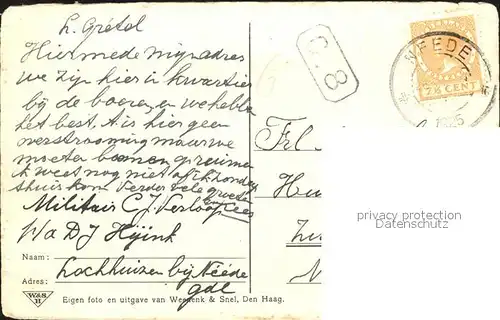 L. Gretel
Hiermede mijn adres
we zijn hier in kwartier
bij de boeren, en we hebben
het best. t is hier geen
overstrooming maar we
moeten boomen opruimen
k weet nog niet of ik Zondag
thuis kom Verder vele groeten
van Cees
Militair C. J. Verloop
p/a D J
Naam:
Lochhuizen bij Néédé
Adres:
gdl
W&S
H
Eigen foto en uitgave van Weenenk & Snel, Den Haag.
G. 8
NEEDE
1925
7½ CENT
Frl
privacy protection
Datenschutz